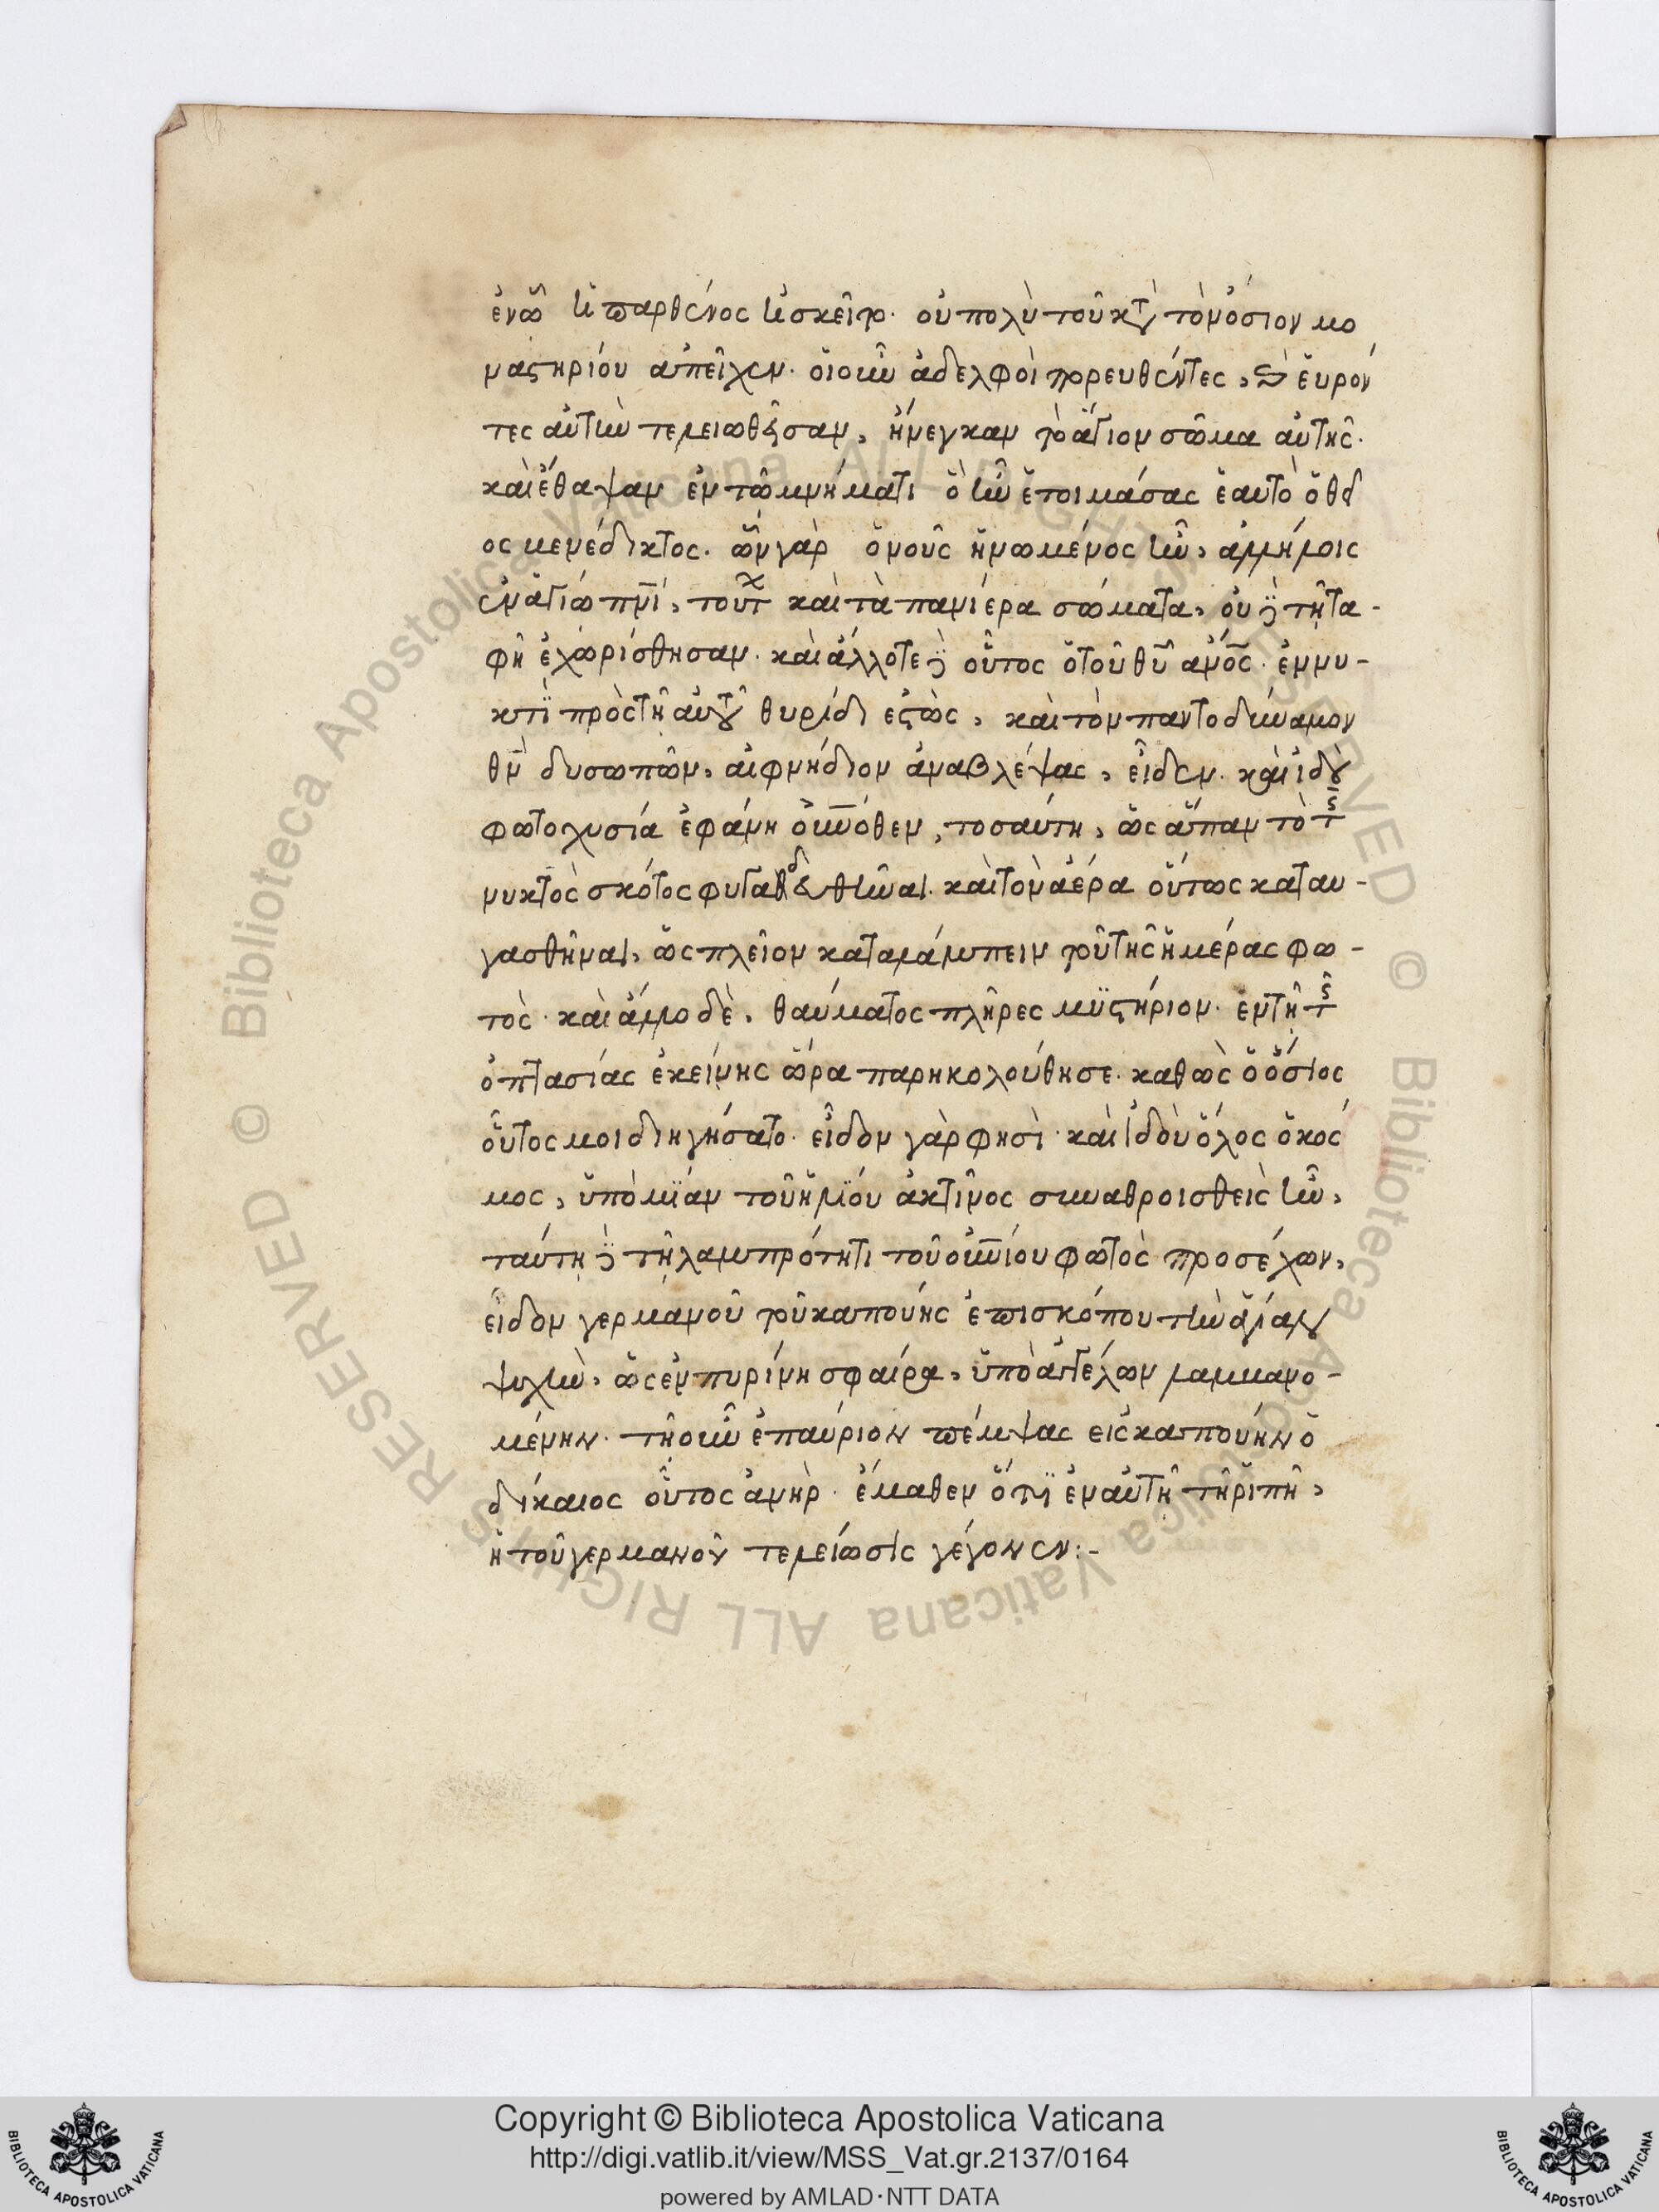 ἐν ᾧ ἡ παρθένος ἠσκεῖτο· οὐ πολὺ τοῦ κατὰ τὸν ὅσιον μο
ναστηρίου ἀπεῖχεν· οἱ οὖν ἀδελφοὶ πορευθέντες, καὶ εὑρόν
τες αὐτὴν τελειωθεῖσαν, ἤνεγκαν τὸ ἅγιον σῶμα αὐτῆς·
καὶ ἔθαψαν ἐν τῶ μνήματι ὃ ἦν ἑτοιμάσας ἑαυτῶ ὁ θεῖ
ος βενέδικτος· ὧν γὰρ ὁ νοῦς ἡνωμένος ἦν, ἀλλήλοις
ἐν ἁγίω πνι, τούτων καὶ τὰ πανίερα σώματα, οὐδὲ τῆ τα-
φῆ ἐχωρίσθησαν· καὶ ἄλλοτε δὲ οὗτος ὁ τοῦ θυ ανος· ἐν νυ-
κτὶ πρὸς τῆ αὐτοῦ θυρίδι ἑστὼς, καὶ τὸν παντοδύναμον
θν δυσωπῶν, αἰφνήδιον ἀναβλέψας, εἶδεν· καὶ ἰδοὺ
φωτοχυσία ἐφάνη οὐνόθεν, τοσαύτη, ὡς ἅπαν τὸ τῆς
νυκτὸς σκότος φυγαδευθῆναι· καὶ τὸν ἀέρα οὕτως καταυ-
γασθῆναι, ὡς πλεῖον καταλάμπειν τοῦ τῆς ἡμέρας φω-
τός· καὶ ἄλλο δὲ, θαύματος πλῆρες μυστήριον· ἐν τῆ τῆς
ὀπτασίας ἐκείνης ὥρα παρηκολούθησε· καθὼς ὁ ὅσιος
οὗτος μοι διηγήσατο· εἶδον γὰρ φησὶ· καὶ ἰδοὺ ὅλος ὁ κόσ
μος, ὑπὸ μίαν τοῦ ἡλίου ἀκτῖνος συναθροισθεὶς ἦν,
ταύτη δὲ τῆ λαμπρότητι τοῦ οὐνίου φωτὸς προσέχων,
εἶδον γερμανοῦ τοῦ καπούης ἐπισκόπου τὴν ἁγίαν
ψυχὴν, ὡς ἐν πυρίνη σφαίρα, ὑπὸ ἀγγέλων λαμβανο-
μένην· τῆ οὖν ἐπαύριον πέμψας εἰς καπούην ὁ
δίκαιος οὗτος ἀνὴρ· ἔμαθεν ὅτι ἐν αὐτῆ τῆ ῥιπῆ,
ἡ τοῦ γερμανοῦ τελείωσις γέγονεν:-
Copyright © Biblioteca Apostolica Vaticana
http://digi.vatlib.it/view/MSS_Vat.gr.2137/0164
powered by AMLAD·NTT DATA
BIBLIOTECA APOSTOLICA VATICANA
BIBLIOTECA APOSTOLICA VATICANA
© Biblioteca Apostolica Vaticana ALL RIGHTS RESERVED © Biblioteca Apostolica Vaticana ALL RIGHTS RESERVED